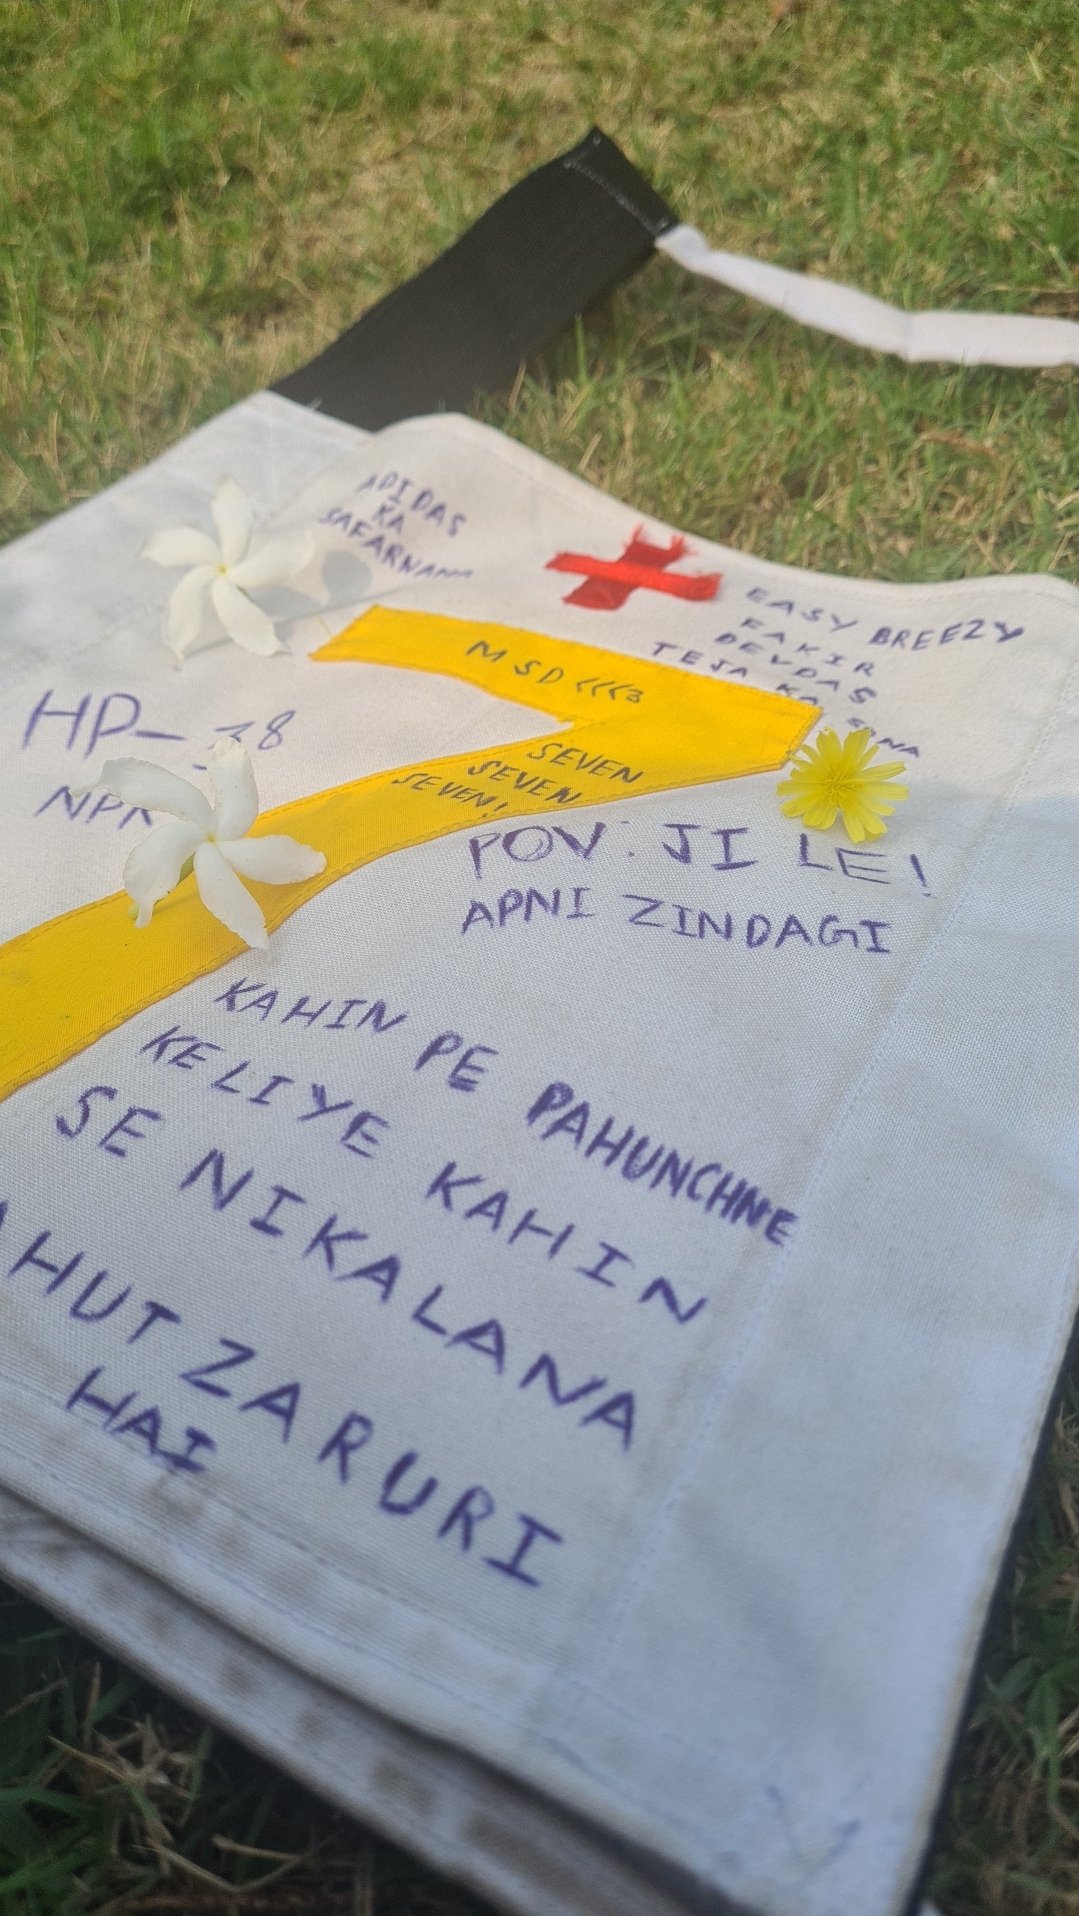 ADIDAS
KA
EASY BREEZY
FAKIR
DEVDAS
TEJA KA
MSD <<<3
HP-
SEVEN
SEVEN
SEVEN!
POV: JI LE!
APNI ZINDAGI
KAHIN PE PAHUNCHNE
KELIYE KAHIN
SE NIKALANA
AHUT ZARURI
HAI